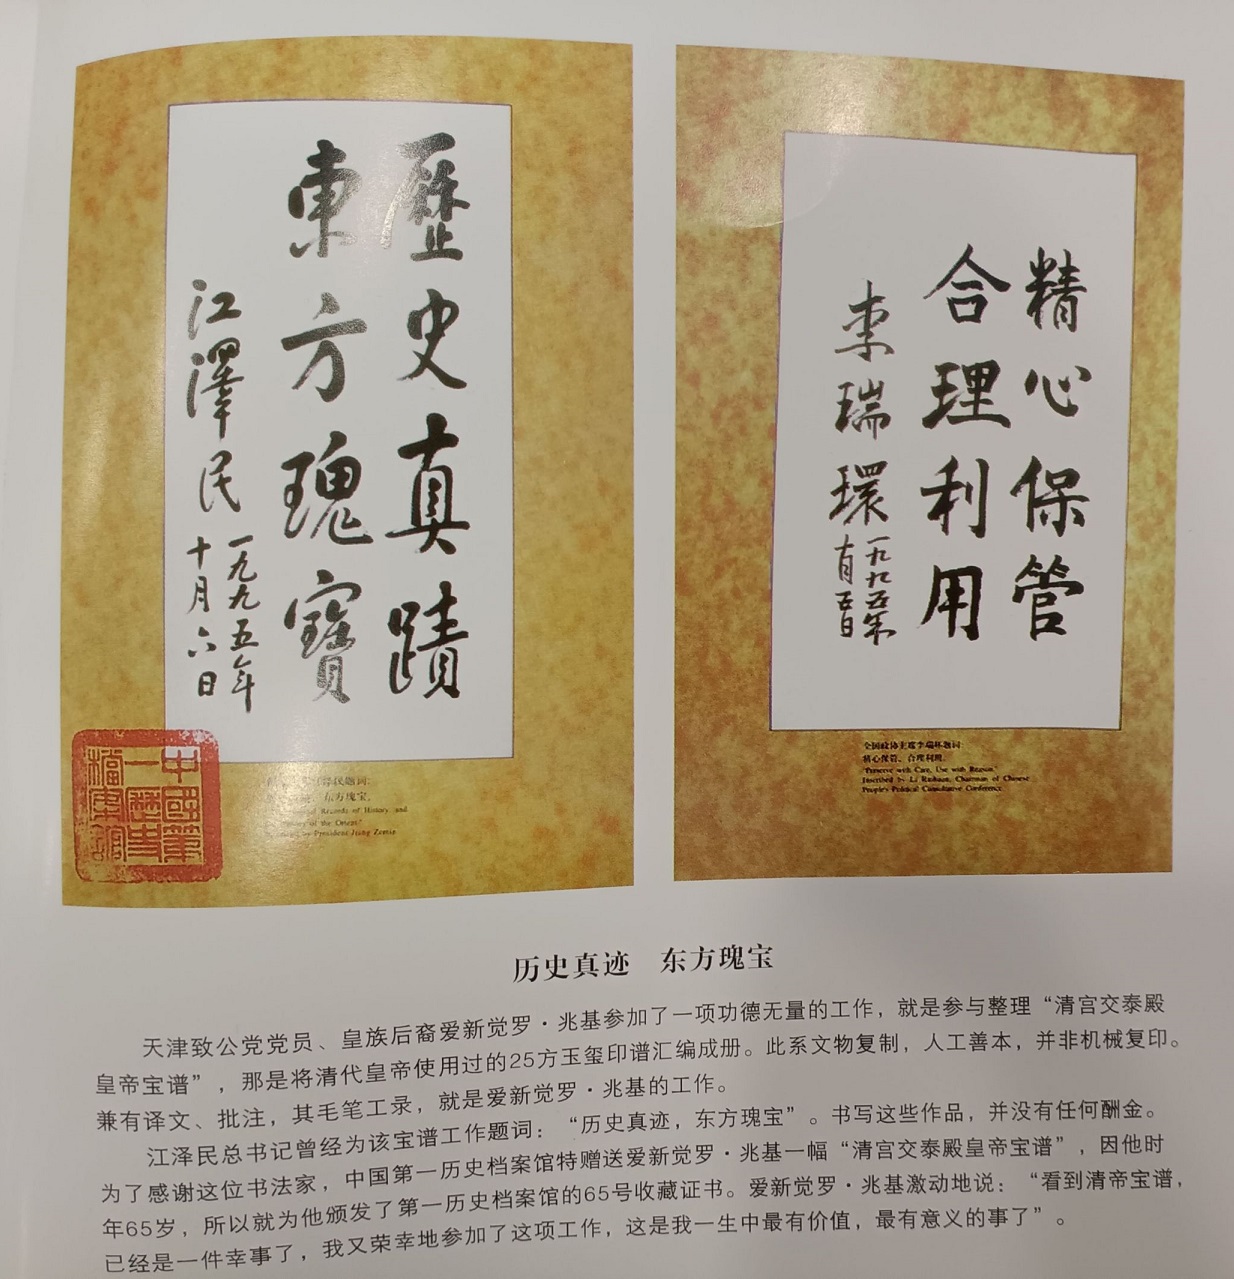 歷史真蹟
東方瑰寶
江澤民
一九九五年
十月六日
中國第
一歷史
檔案館
江泽民题词:
东方瑰宝。
Records of History, and
of the Orient."
by President Jiang Zemin
精心保管
合理利用
李瑞環
一九九五年
全国政协主席李瑞环题词:
精心保管、合理利用。
"Preserve with Care, Use with Reason."
Inscribed by Li Ruihuan, Chairman of Chinese
People's Political Consultative Conference.
历史真迹 东方瑰宝
天津致公党党员、皇族后裔爱新觉罗·兆基参加了一项功德无量的工作，就是参与整理“清宫交泰殿
皇帝宝谱”，那是将清代皇帝使用过的25方玉玺印谱汇编成册。此系文物复制，人工善本，并非机械复印。
兼有译文、批注，其毛笔工录，就是爱新觉罗·兆基的工作。
江泽民总书记曾经为该宝谱工作题词：“历史真迹，东方瑰宝”。书写这些作品，并没有任何酬金。
为了感谢这位书法家，中国第一历史档案馆特赠送爱新觉罗·兆基一幅“清宫交泰殿皇帝宝谱”，因他时
年65岁，所以就为他颁发了第一历史档案馆的65号收藏证书。爱新觉罗·兆基激动地说：“看到清帝宝谱，
已经是一件幸事了，我又荣幸地参加了这项工作，这是我一生中最有价值，最有意义的事了”。